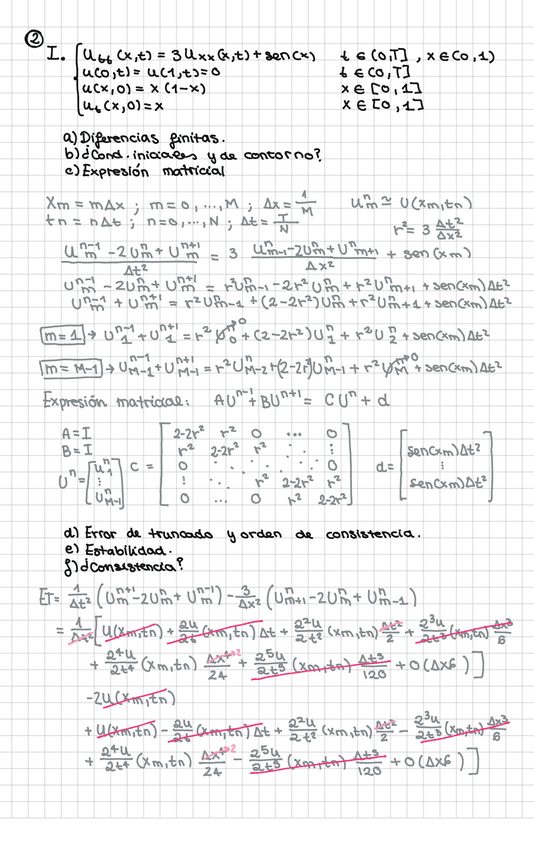 ②
I. { u_tt(x,t) = 3u_xx(x,t) + sen(x)   t ∈ (0,T] , x ∈ (0,1)
u(0,t) = u(1,t) = 0   t ∈ (0,T]
u(x,0) = x(1-x)   x ∈ [0,1]
u_t(x,0) = x   x ∈ [0,1]
a) Diferencias finitas.
b) ¿Cond. iniciales y de contorno?
c) Expresión matricial
Xm = mΔx ; m = 0,...,M ; Δx = 1/M   u_m^n ≃ U(xm,tn)
tn = nΔt ; n=0,...,N ; Δt = T/N   r² = 3 Δt²/Δx²
(U_m^{n-1} - 2U_m^n + U_m^{n+1})/Δt² = 3 (U_{m-1}^n - 2U_m^n + U_{m+1}^n)/Δx² + sen(xm)
U_m^{n-1} - 2U_m^n + U_m^{n+1} = r²U_{m-1}^n - 2r²U_m^n + r²U_{m+1}^n + sen(xm)Δt²
U_m^{n-1} + U_m^{n+1} = r²U_{m-1}^n + (2-2r²)U_m^n + r²U_{m+1}^n + sen(xm)Δt²
m=1 → U_1^{n-1} + U_1^{n+1} = r² U_0^n →0 + (2-2r²)U_1^n + r²U_2^n + sen(xm)Δt²
m=M-1 → U_{M-1}^{n-1} + U_{M-1}^{n+1} = r²U_{M-2}^n + (2-2r²)U_{M-1}^n + r² U_M^n →0 + sen(xm)Δt²
Expresión matricial: AU^{n-1} + BU^{n+1} = CU^n + d
A = I
B = I
U^n = [U_1^n ⋮ U_{M-1}^n]
C = [2-2r² r² 0 ... 0
r² 2-2r² r² ⋱ ⋮
0 ⋱ ⋱ ⋱ 0
⋮ ⋱ r² 2-2r² r²
0 ... 0 r² 2-2r²]
d = [sen(xm)Δt²
⋮
sen(xm)Δt²]
d) Error de truncado y orden de consistencia.
e) Estabilidad.
f) ¿Consistencia?
ET = 1/Δt² (U_m^{n+1} - 2U_m^n + U_m^{n-1}) - 3/Δx² (U_{m+1}^n - 2U_m^n + U_{m-1}^n)
= 1/Δt² [U(xm,tn) + ∂u/∂t (xm,tn) Δt + ∂²u/∂t² (xm,tn) Δt²/2 + ∂³u/∂t³ (xm,tn) Δx³/6
+ ∂⁴u/∂t⁴ (xm,tn) Δx⁴→2/24 + ∂⁵u/∂t⁵ (xm,tn) Δt⁵/120 + O(Δx6)]
-2U(xm,tn)
+ U(xm,tn) - ∂u/∂t (xm,tn) Δt + ∂²u/∂t² (xm,tn) Δt²/2 - ∂³u/∂t³ (xm,tn) Δx³/6
+ ∂⁴u/∂t⁴ (xm,tn) Δx⁴→2/24 - ∂⁵u/∂t⁵ (xm,tn) Δt⁵/120 + O(Δx6)]